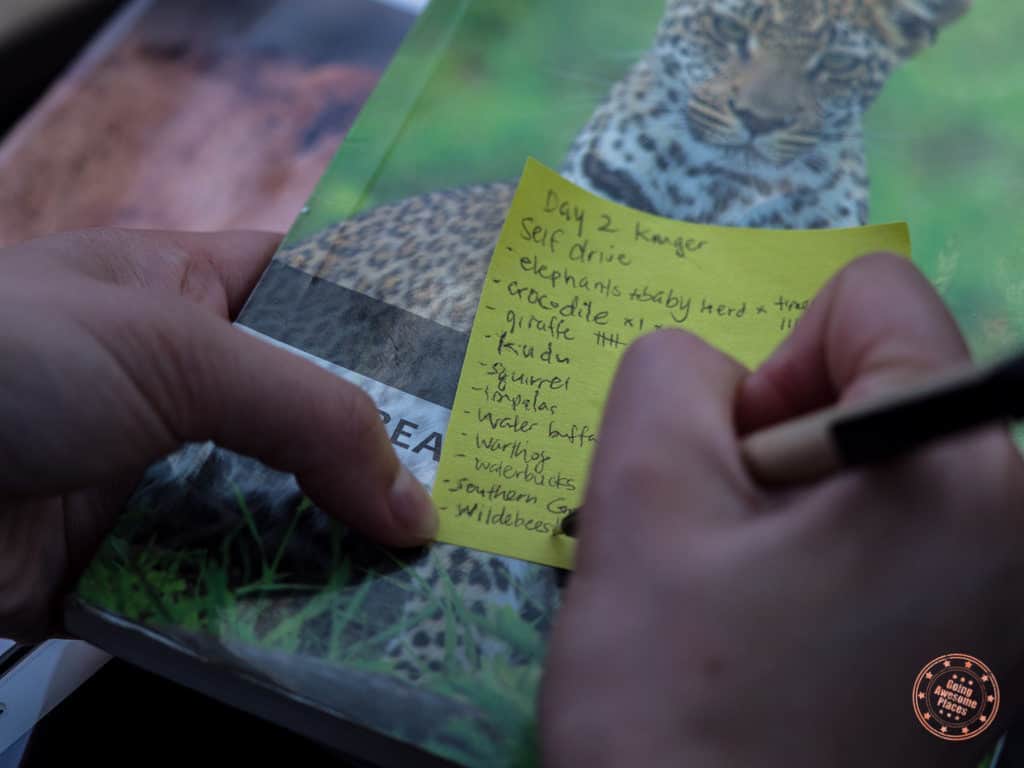 Day 2 Kruger
Self drive
- elephants + baby herd x
- crocodile x1
- giraffe
- Kudu
- squirrel
- impalas
- Water buffa
- Warthog
- waterbucks
- Southern
- Wildebees
REA
Going
Awesome
Places